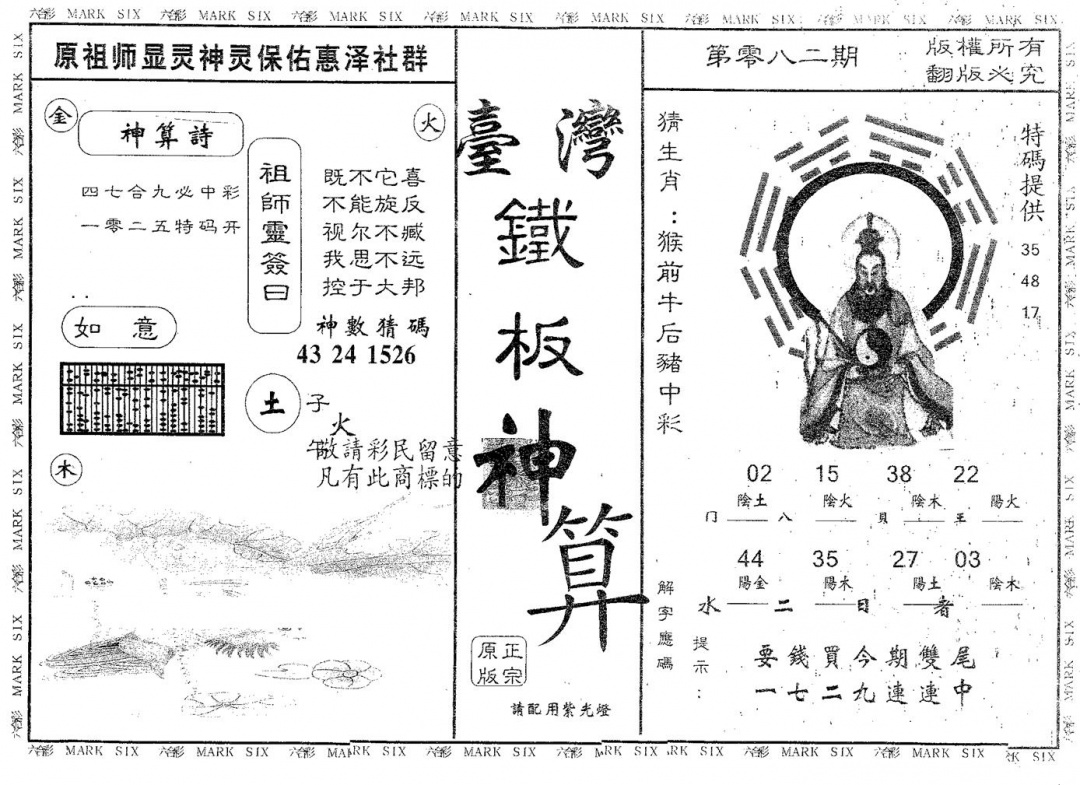 六彩 MARK SIX 六彩 MARK SIX 六彩 MARK SIX 六彩 MARK SIX 六彩 MARK SIX 六彩 MARK SIX 六彩 MARK SIX 六彩 MARK SIX
原祖师显灵神灵保佑惠泽社群
金
神算詩
四七合九必中彩
一零二五特码开
火
祖師靈簽曰
既不它喜
不能旋反
视尔不臧
我思不远
控于大邦
神數猜碼
43 24 1526
如意
土
子
火
午
敬請彩民留意
凡有此商標的
木
臺灣
鐵
板
神
算
正宗
原版
請配用紫光燈
第零八二期
版權所有
翻版必究
猜生肖：猴前牛后豬中彩
特碼提供
35
48
17
02 15 38 22
陰土 陰火 陰木 陽火
门 八 貝 王
44 35 27 03
陽金 陽木 陽土 陰木
水 二 日 者
解字應碼
提示：
要錢買今期雙尾
一七二九連連中
六彩 MARK SIX 六彩 MARK SIX 六彩 MARK SIX 六彩 MARK SIX 六彩 MARK SIX 六彩 MARK SIX 六彩 MARK SIX